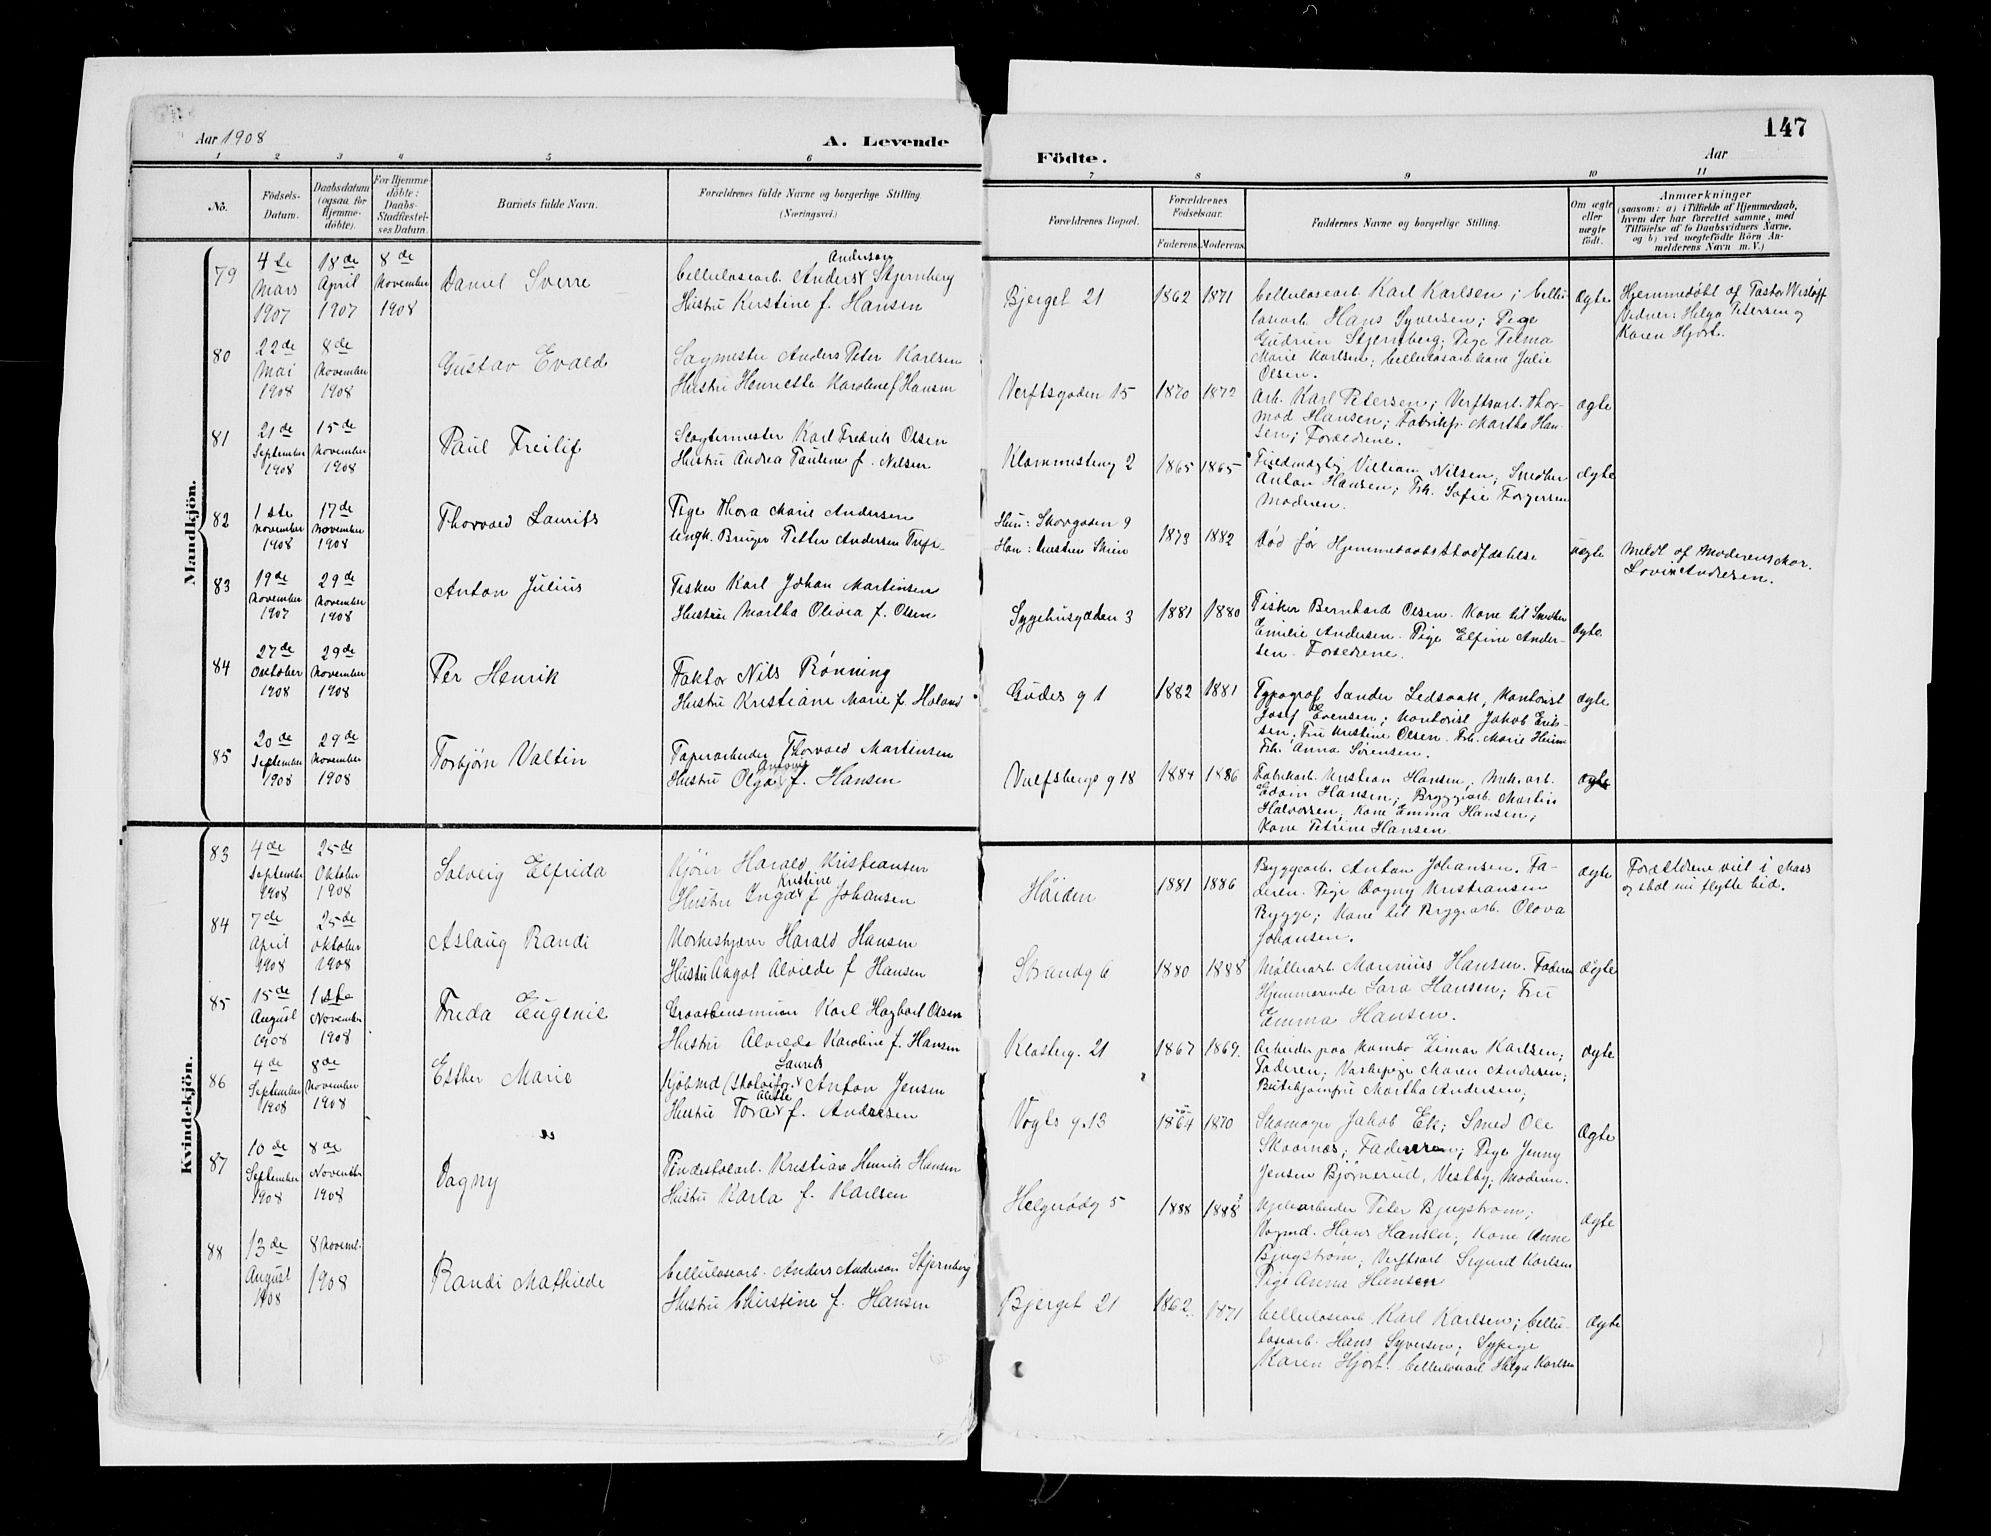 Aar 1908
A. Levende
1 2 3 4 5 6
No.
Födsels-
Datum.
Daabsdatum
(ogsaa for
Hjemme-
döbte).
For Hjemme-
döbte:
Daabs-
Stadfæstel-
ses Datum.
Barnets fulde Navn.
Forældrenes fulde Navne og borgerlige Stilling
(Næringsvei.)
Mandkjön.
79
4de
Mars
1907
18de
April
1907
8de
November
1908
Daniel Sverre
Anderson
Cellulosearb. Anders Stjernberg
Hustru Kirstine f. Hansen
80
22de
Mai
1908
8de
November
1908
Gustav Evald
Sagmester Anders Peter Karlsen
Hustru Henriette Karoline f Hansen
81
21de
September
1908
15de
November
1908
Paul Freilif
Slagtermester Karl Fredrik Olsen
Hustru Andrea Pauline f. Nilsen
82
1ste
November
1908
17de
November
1908
Thorvald Laurits
Pige Thora Marie Andersen
Ungk. Petter Andersen
83
19de
November
1907
29de
November
1908
Anton Julius
Fisker Karl Johan Martinsen
Hustru Martha Olivia f. Olsen
84
27de
Oktober
1908
29de
November
1908
Per Henrik
Faktor Nils Rönning
Hustru Kristiane Marie f. Holand
85
20de
September
1908
29de
November
1908
Torbjørn Valtin
Papirarbeider Thorvald Martinsen
Hustru Olga f. Hansen
Kvindekjön.
83
4de
September
1908
25de
Oktober
1908
Solveig Elfrida
Kjører Harald Kristiansen
Kristine
Hustru Inga f Johansen
84
7de
April
1908
25de
Oktober
1908
Aslaug Randi
Harald Hansen
Hustru Aagot Alvilde f Hansen
85
15de
August
1908
1ste
November
1908
Frida Eugenie
Karl Hagbart Olsen
Hustru Alvilde Karoline f. Hansen
86
4de
September
1908
8de
November
1908
Esther Marie
Laurits
Kjöbmd Anton Jensen
Hustru Tora f. Andresen
87
10de
September
1908
8de
November
1908
Dagny
Kristian Henrik Hansen
Hustru Karla f. Karlsen
88
13de
August
1908
8 Novemb.
1908
Randi Mathilde
Cellulosearb. Anders Anderson Stjernberg
Hustru Christine f. Hansen
147
Födte.
Aar
7 8 9 10 11
Forældrenes Bopæl.
Forældrenes
Födselsaar.
Faderens. Moderens.
Faddernes Navne og borgerlige Stilling.
Om ægte
eller
uægte
födt.
Anmærkninger
(saasom: a) i Tilfælde af Hjemmedaab,
hvem der har forrettet samme, med
Tilföielse af to Daabsvidners Navne.
og b) ved uægtefödte Börn An-
melderens Navn m. V.)
Bjerget 21
1862
1871
Cellulosearb. Karl Karlsen; Cellu-
losearb. Hans Syversen; Pige
Gudrun Stjernberg; Pige Telma
Marie Karlsen; Cellulosearb kone Julie
Olsen.
ægte
Hjemmedøbt af Pastor Wisløff
Vidner: Helga Petersen og
Karen Hjort.
Verftsgaden 15
1870
1872
Arb. Karl Petersen; Verftsarb. Thor-
mod Hansen; Fabrikp. Martha Han-
sen; Forældrene.
ægte
2
1865
1865
Villiam Nilsen; Smedker
Anton Hansen; Frk. Sofie Torgersen
Moderen.
ægte
Hun: Skovgaden 9
Han: Skien
1873
1882
Død før Hjemmedaabsstadfæstelse
uægte
Meldt af Moderens Mor.
Lovise Andresen.
Sygehusgaden 3
1881
1880
Fisker Bernhard Olsen. Kone til Smedker
Emilie Andersen. Pige Elfine Ander-
sen. Forældrene.
ægte
Gudes g 1
1882
1881
Typograf Sander Ledsaak, Kontorist
Josef Evensen; Kontorist Jakob Erik-
sen; Fru Kristine Olsen. Frk. Marie Heim
Frk. Anna Sørensen.
ægte
Vulfsbergs g 18
1884
1886
Fabrikarb. Kristian Hansen; Mek. arb.
Edvin Hansen; Bryggearb. Martin
Halvorsen; Kone Emma Hansen;
Kone Petrine Hansen
ægte
Höiden
1881
1886
Byggearb. Anton Johansen. Fa-
deren. Pige Dagny Kristiansen
Bygge; Kone til Byggearb. Olova
Johansen.
ægte
Forældrene viet i Moss
og skal nu flytte hid.
Strandg 6
1880
1888
Møllerarb. Marinius Hansen. Faderen
Hjemmeværende Sara Hansen; Fru
Emma Hansen.
ægte
Klosterg. 21
1867
1869.
Arbeider paa Kambo Einar Karlsen;
Faderen; Vaskepige Maren Andresen;
Butikjomfru Martha Andersen;
ægte
Vogts g. 13
1864
1870
Skomager Jakob Ek; Smed Ole
Skaarnæs; Faderen; Pige Jenny
Jensen Bjørnerud, Vestby; Moderen.
Ægte
Helgerödg 5
1888
1888
Peter Bjugstrøm;
Vognmd. Hans Hansen; Kone Anne
Bjugstrøm; Verftsarb Sigurd Karlsen
Pige Anna Hansen
ægte
Bjerget 21
1862.
1871
Cellulosearb Karl Karlsen; Cellu-
losearb. Hans Syversen; Sypige
Karen Hjort. Cellulosearb Helga Karlsen
Ægte